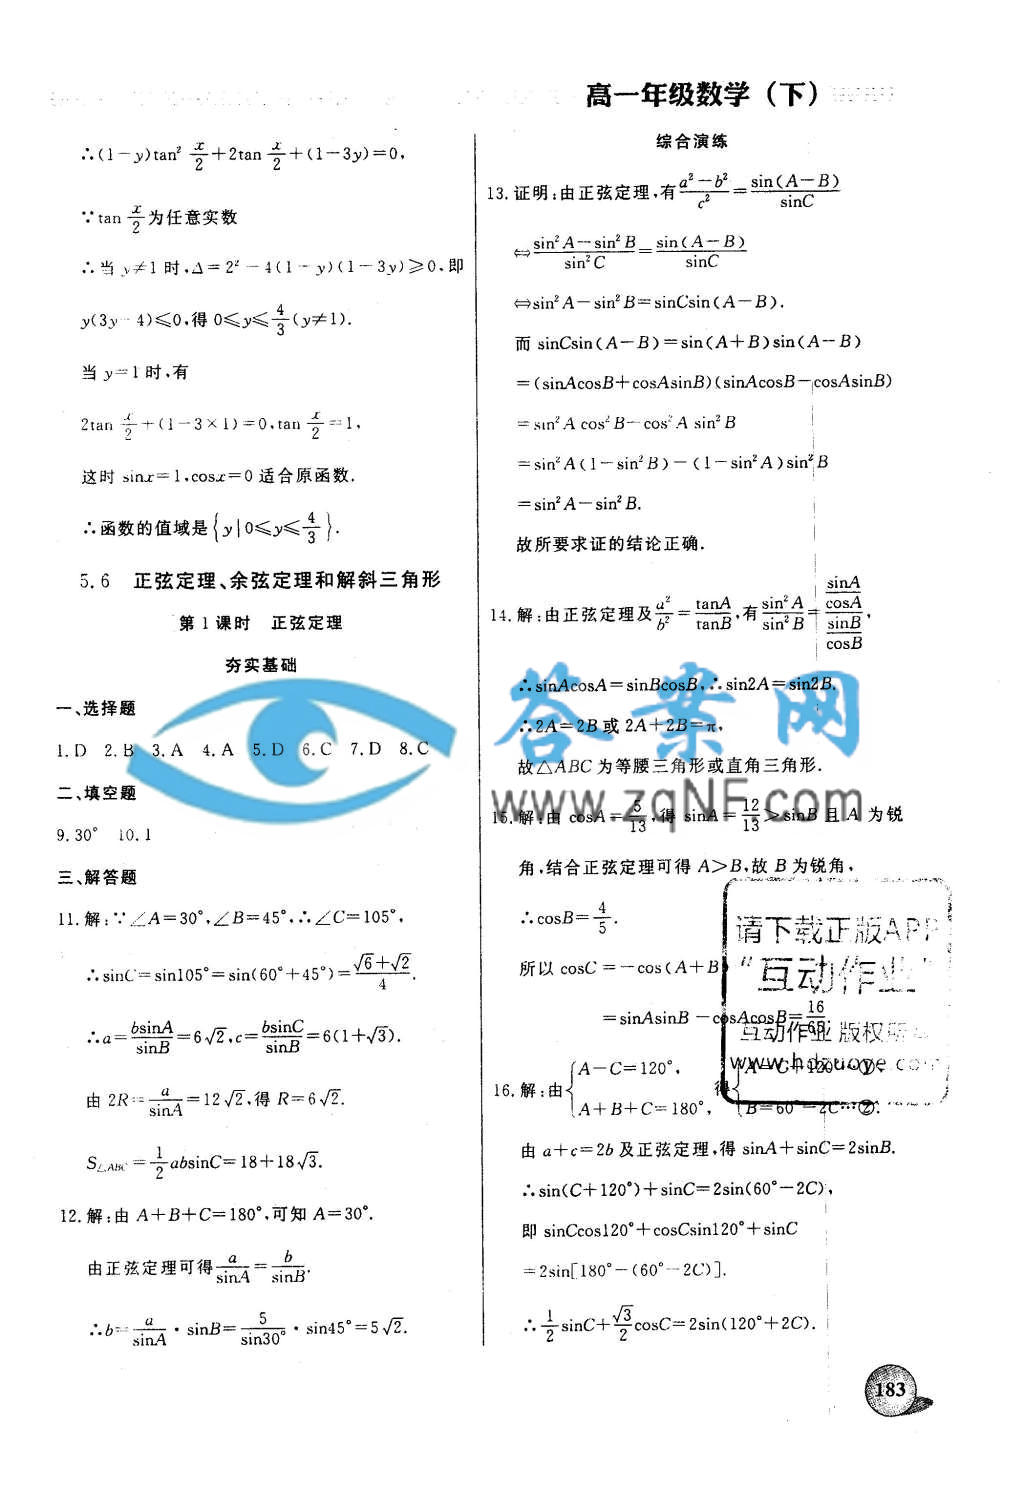 高一年级数学（下）
∴(1－y)tan² x/2＋2tan x/2＋(1－3y)＝0,
∵tan x/2 为任意实数
∴当 y≠1 时,Δ＝2²－4(1－y)(1－3y)≥0,即
y(3y－4)≤0,得 0≤y≤4/3(y≠1).
当 y＝1 时,有
2tan x/2＋(1－3×1)＝0,tan x/2＝1,
这时 sinx＝1,cosx＝0 适合原函数.
∴函数的值域是{y|0≤y≤4/3}.
5.6 正弦定理、余弦定理和解斜三角形
第1课时 正弦定理
夯实基础
一、选择题
1.D 2.B 3.A 4.A 5.D 6.C 7.D 8.C
二、填空题
9.30° 10.1
三、解答题
11.解:∵∠A＝30°,∠B＝45°,∴∠C＝105°,
∴sinC＝sin105°＝sin(60°＋45°)＝(√6＋√2)/4.
∴a＝bsinA/sinB＝6√2,c＝bsinC/sinB＝6(1＋√3).
由 2R＝a/sinA＝12√2,得 R＝6√2.
S△ABC＝1/2absinC＝18＋18√3.
12.解:由 A＋B＋C＝180°,可知 A＝30°.
由正弦定理可得 a/sinA＝b/sinB.
∴b＝a/sinA·sinB＝5/sin30°·sin45°＝5√2.
综合演练
13.证明:由正弦定理,有(a²－b²)/c²＝sin(A－B)/sinC
⇔(sin²A－sin²B)/sin²C＝sin(A－B)/sinC
⇔sin²A－sin²B＝sinCsin(A－B).
而 sinCsin(A－B)＝sin(A＋B)sin(A－B)
＝(sinAcosB＋cosAsinB)(sinAcosB－cosAsinB)
＝sin²A cos²B－cos²A sin²B
＝sin²A(1－sin²B)－(1－sin²A)sin²B
＝sin²A－sin²B.
故所要求证的结论正确.
14.解:由正弦定理及 a²/b²＝tanA/tanB,有 sin²A/sin²B＝(sinA/cosA)/(sinB/cosB),
∴sinAcosA＝sinBcosB,∴sin2A＝sin2B,
∴2A＝2B 或 2A＋2B＝π,
故△ABC 为等腰三角形或直角三角形.
15.解:由 cosA＝5/13,得 sinA＝12/13＞sinB 且 A 为锐
角,结合正弦定理可得 A＞B,故 B 为锐角,
∴cosB＝4/5.
所以 cosC＝－cos(A＋B)
＝sinAsinB－cosAcosB＝16/65.
16.解:由{A－C＝120°, A＋B＋C＝180°, 得{A＝C＋120°…①, B＝60°－2C…②.
由 a＋c＝2b 及正弦定理,得 sinA＋sinC＝2sinB.
∴sin(C＋120°)＋sinC＝2sin(60°－2C),
即 sinCcos120°＋cosCsin120°＋sinC
＝2sin[180°－(60°－2C)].
∴1/2sinC＋√3/2cosC＝2sin(120°＋2C).
183
答案网
www.zqNF.com
请下载正版APP
“互动作业”
互动作业 版权所
www.hdzuoye.co